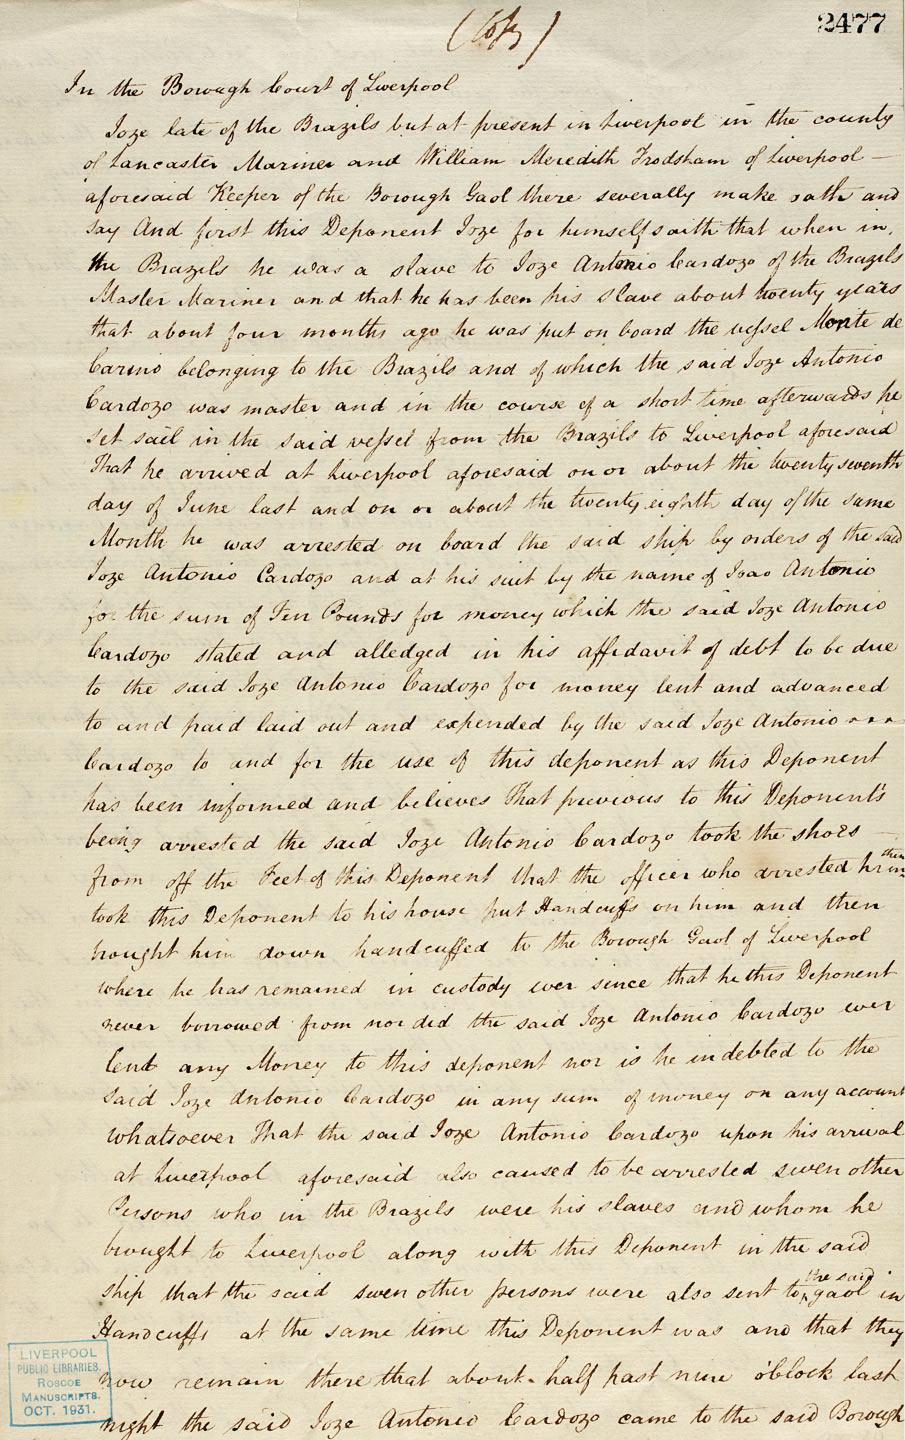 (Copy)
2477
In the Borough Court of Liverpool
Joze late of the Brazils but at present in Liverpool in the county
of Lancaster Mariner and William Meredith Frodsham of Liverpool —
aforesaid Keeper of the Borough Gaol there severally make oath and
say And first this Deponent Joze for himself saith that when in
the Brazils he was a slave to Joze Antonio Cardozo of the Brazils
Master Mariner and that he has been his slave about twenty years
that about four months ago he was put on board the vessel Monte de
Carino belonging to the Brazils and of which the said Joze Antonio
Cardozo was master and in the course of a short time afterwards he
set sail in the said vessel from the Brazils to Liverpool aforesaid
That he arrived at Liverpool aforesaid on or about the twenty seventh
day of June last and on or about the twenty eighth day of the same
Month he was arrested on board the said ship by orders of the said
Joze Antonio Cardozo and at his suit by the name of Joao Antonio
for the sum of Ten Pounds for money which the said Joze Antonio
Cardozo stated and alledged in his affidavit of debt to be due
to the said Joze Antonio Cardozo for money lent and advanced
to and paid laid out and expended by the said Joze Antonio
Cardozo to and for the use of this deponent as this Deponent
has been informed and believes That previous to this Deponent's
being arrested the said Joze Antonio Cardozo took the shoes —
from off the Feet of this Deponent that the officer who arrested him then
took this Deponent to his house put Handcuffs on him and then
brought him down handcuffed to the Borough Gaol of Liverpool
where he has remained in custody ever since that he this Deponent
never borrowed from nor did the said Joze Antonio Cardozo ever
lend any Money to this deponent nor is he indebted to the
said Joze Antonio Cardozo in any sum of money on any account
whatsoever That the said Joze Antonio Cardozo upon his arrival
at Liverpool aforesaid also caused to be arrested seven other
Persons who in the Brazils were his slaves and whom he
brought to Liverpool along with this Deponent in the said
ship that the said seven other persons were also sent to the said gaol in
Handcuffs at the same time this Deponent was and that they
now remain there that about half past nine o'Clock last
night the said Joze Antonio Cardozo came to the said Borough
LIVERPOOL
PUBLIC LIBRARIES.
ROSCOE
MANUSCRIPTS.
OCT. 1931.